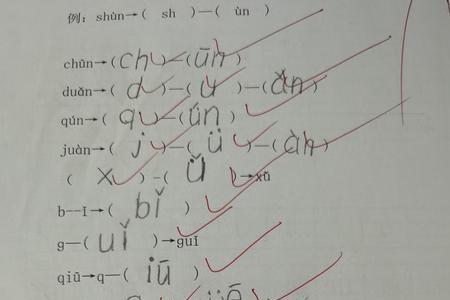 例：shùn→( sh )—( ùn )
chūn→( ch )—( ūn )
duǎn→( d )—( u )—( ǎn )
qún→( q )—( ún )
juàn→( j )—( ü )—( àn )
( x )-( ǚ )→xǔ
b--ǐ→( bǐ )
g—( uǐ )→guǐ
qiū→q—( iū )